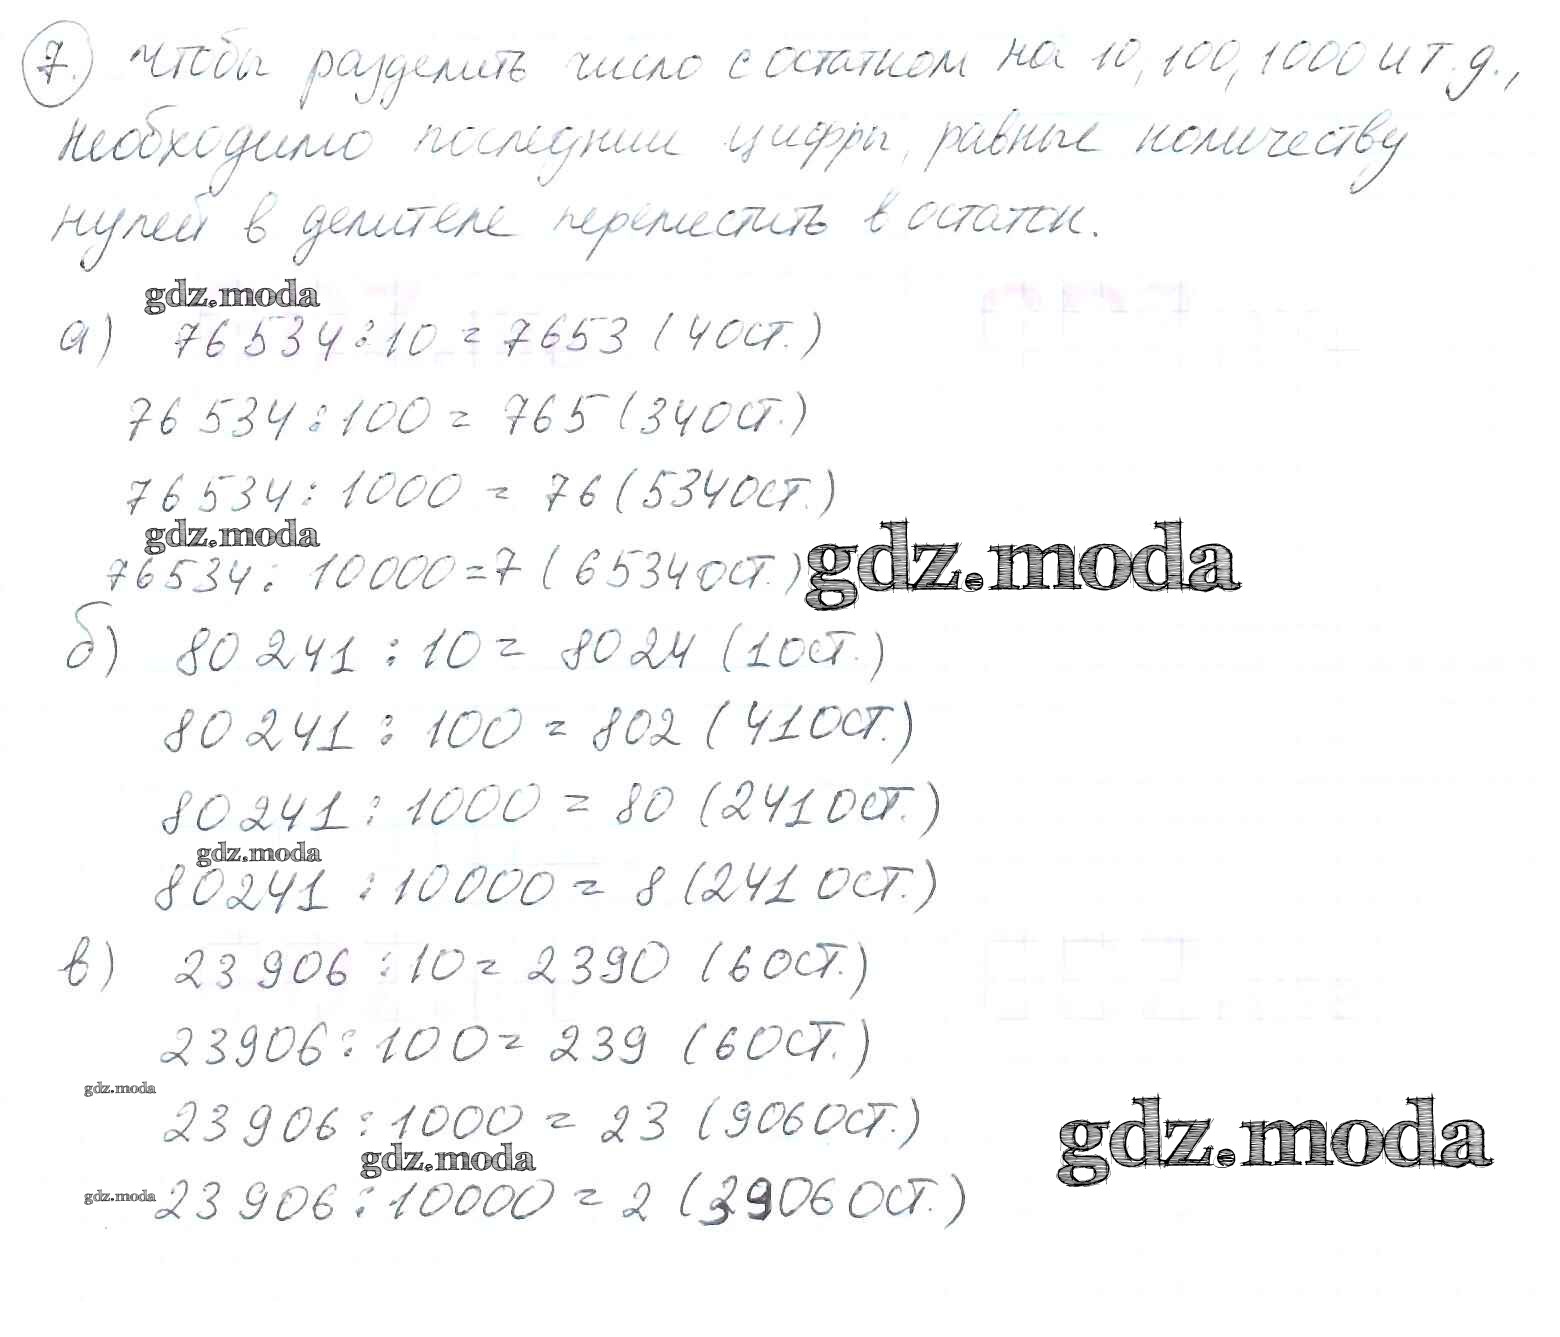 7. Чтобы разделить число с остатком на 10, 100, 1000 и т.д.,
необходимо последние цифры, равные количеству
нулей в делителе переместить в остаток.
gdz.moda
а) 76534:10 = 7653 (4ост.)
76534:100 = 765 (34ост.)
76534:1000 = 76 (534ост.)
gdz.moda
76534:10000=7 (6534ост.)
gdz.moda
б) 80241:10= 8024 (1ост.)
80241:100 = 802 (41ост.)
80241:1000 = 80 (241ост.)
gdz.moda
80241:10000 = 8 (241ост.)
в) 23906:10= 2390 (6ост.)
23906:100= 239 (6ост.)
gdz.moda
23906:1000 = 23 (906ост.)
gdz.moda
gdz.moda
gdz.moda
23906:10000 = 2 (3906ост.)